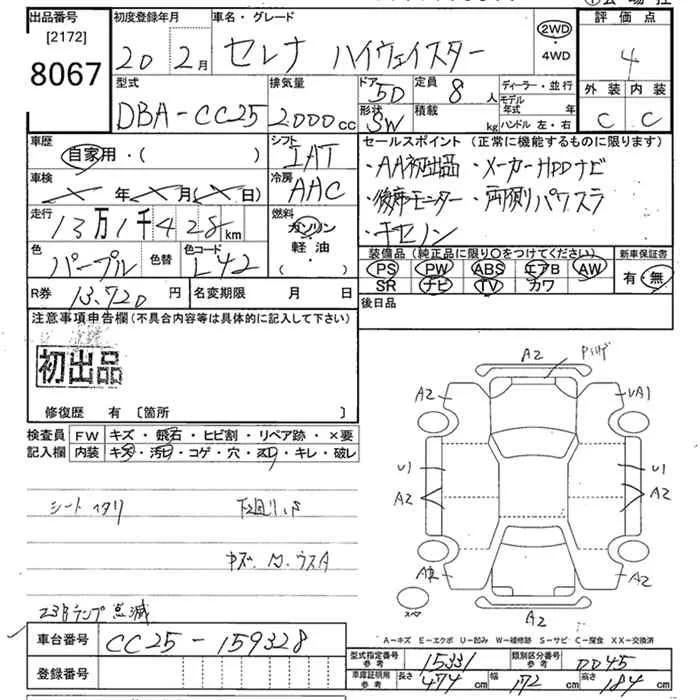 出品番号 初度登録年月 車名・グレード 評価点
[2172]
8067
20 2月 セレナ ハイウェイスター 2WD・4WD 4
型式 排気量 ドア 5D 定員 8人 ディーラー・並行 外装 内装
DBA-CC25 2000cc 形状 SW 積載 kg モデル年式 年 ハンドル 左・右 C C
車歴 シフト セールスポイント(正常に機能するものに限ります)
自家用・( ) IAT ・AA初出品 ・メーカーHDDナビ
車検 年 月( 日) 冷房 AAC ・後席モニター ・両側パワスラ
走行 13万1千428km 燃料 ガソリン 軽油・( ) ・キセノン
色 パープル 色替 色コード L42
装備品(純正品に限り○をつけてください) 新車保証書
PS PW ABS エアB AW 有・無
SR ナビ TV カワ
R券 13,720円 名変期限 月 日 後日品
注意事項申告欄(不具合内容等は具体的に記入して下さい)
初出品
修復歴 有 [箇所 ]
検査員記入欄 FW キズ・飛石・ヒビ割・リペア跡・×要
内装 キズ・汚れ・コゲ・穴・スレ・キレ・破レ
シートヘタリ 下廻りS
キズ.
ランプ 点滅
A2
A2 UA1
U1 U1
A2 A2
A2
A2
スペア
A-キズ E-エクボ U-凹み W-補修跡 S-サビ C-腐食 XX-交換済
車台番号 CC25-159328
登録番号
型式指定番号 参考 15331 類別区分番号 参考 0045
車庫証明用 参考 長さ 474cm 幅 172cm 高さ 184cm